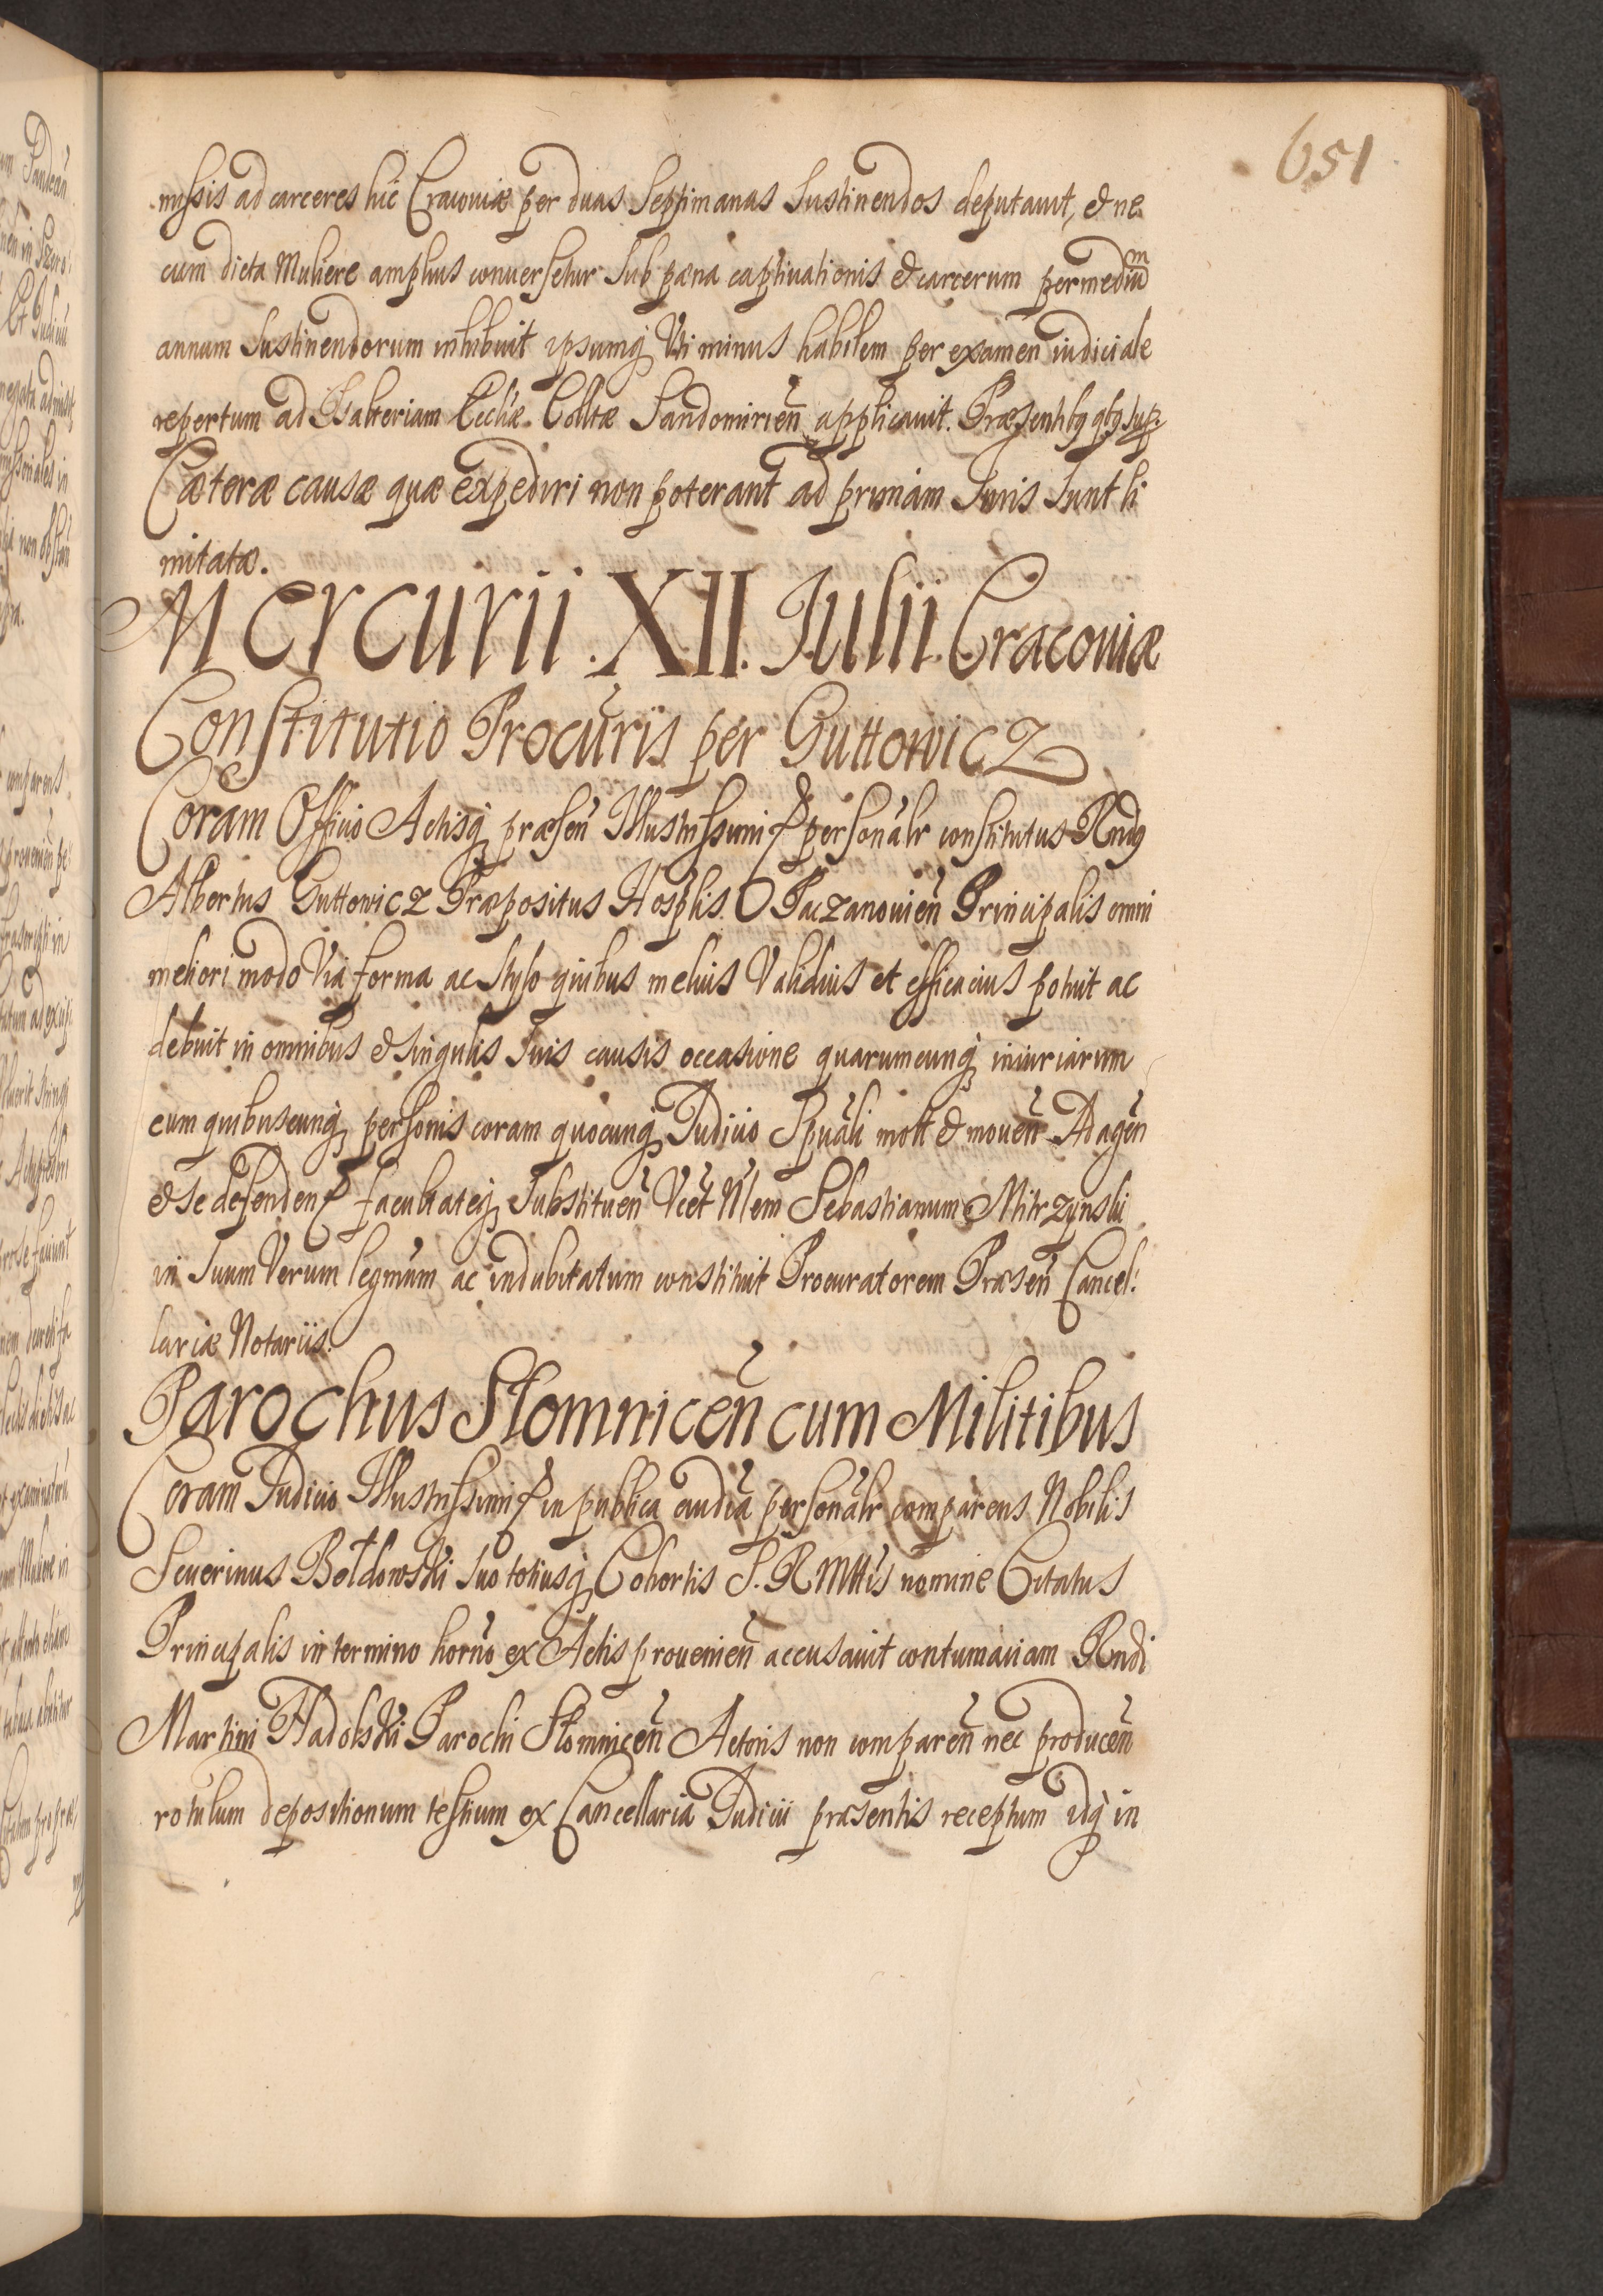 651
missis ad carceres hic Cracoviæ per duas Septimanas Sustinendos deputavit, & ne
cum dicta Muliere amplius conversetur Sub pæna captivationis & carcerum per mediū
annum Sustinendorum inhibuit ipsumq Uti minus habilem per examen iudiciale
repertum ad Psalteriam Eccliæ Colltæ Sandomirien̄ applicavit. Præsentibq qbq sup.
Cæteræ causæ quæ expediri non poterant ad primam Juris Sunt li
mitatæ.
Mercurii .XII. Julii. Cracoviæ
Constitutio Procuris per Guttowicz
Coram Officio Actisq præsen̄ Illustrissimi & personalr constitutus Rndq
Albertus Guttowicz Præpositus Hosplis O Paczanovien̄ Principalis omni
meliori modo Via forma ac Stylo quibus melius Validius et efficacius potuit ac
debuit in omnibus & singulis Suis causis occasione quarumcunq iniuriarum
cum quibuscunq personis coram quocunq Judicio Spuali mott & moven̄ Ad agen̄
& se defenden & facultateq Substituen̄ Vcet Nlem Sebastianum Mitrzynski
in Suum Verum legmum ac indubitatum constituit Procuratorem Præsen̄ Cancel:
lariæ Notariis.
Parochus Słomnicen̄ cum Militibus
Coram Judicio Illustrissimi & in publica audia personalr comparens Nobilis
Severinus Bełdowski Suo totiusq Cohortis S. R Mttis nomine Citatus
Principalis in termino horno ex Actis provenien̄ accusavit contumaciam Rndi
Martini Hadolski Parochi Słomnicen̄ Actoris non comparen̄ nec producen̄
rotulum depositionum testium ex Cancellaria Judicii præsentis receptum idq in